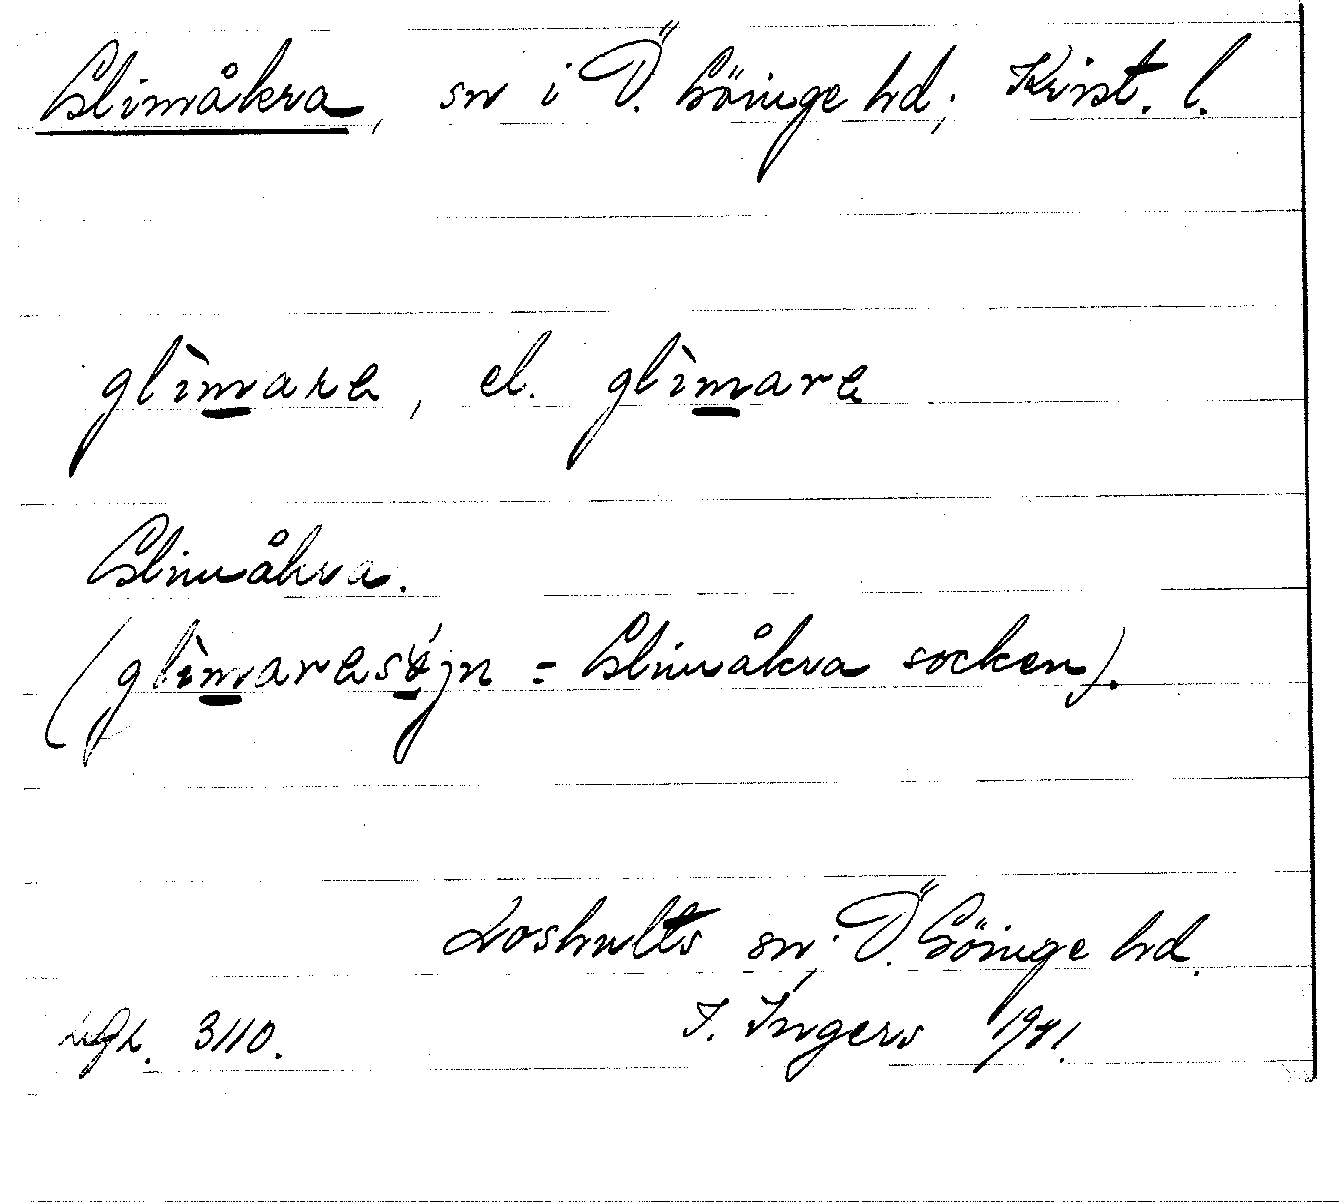 Glimåkra, sn i Ö. Göinge hd; Krist. l.
glìmare, el. glìmare
Glimåkra.
(glìmaresǿjn = Glimåkra socken).
Loshults sn, Ö. Göinge hd.
LgL. 3110. I. Ingers 1941.